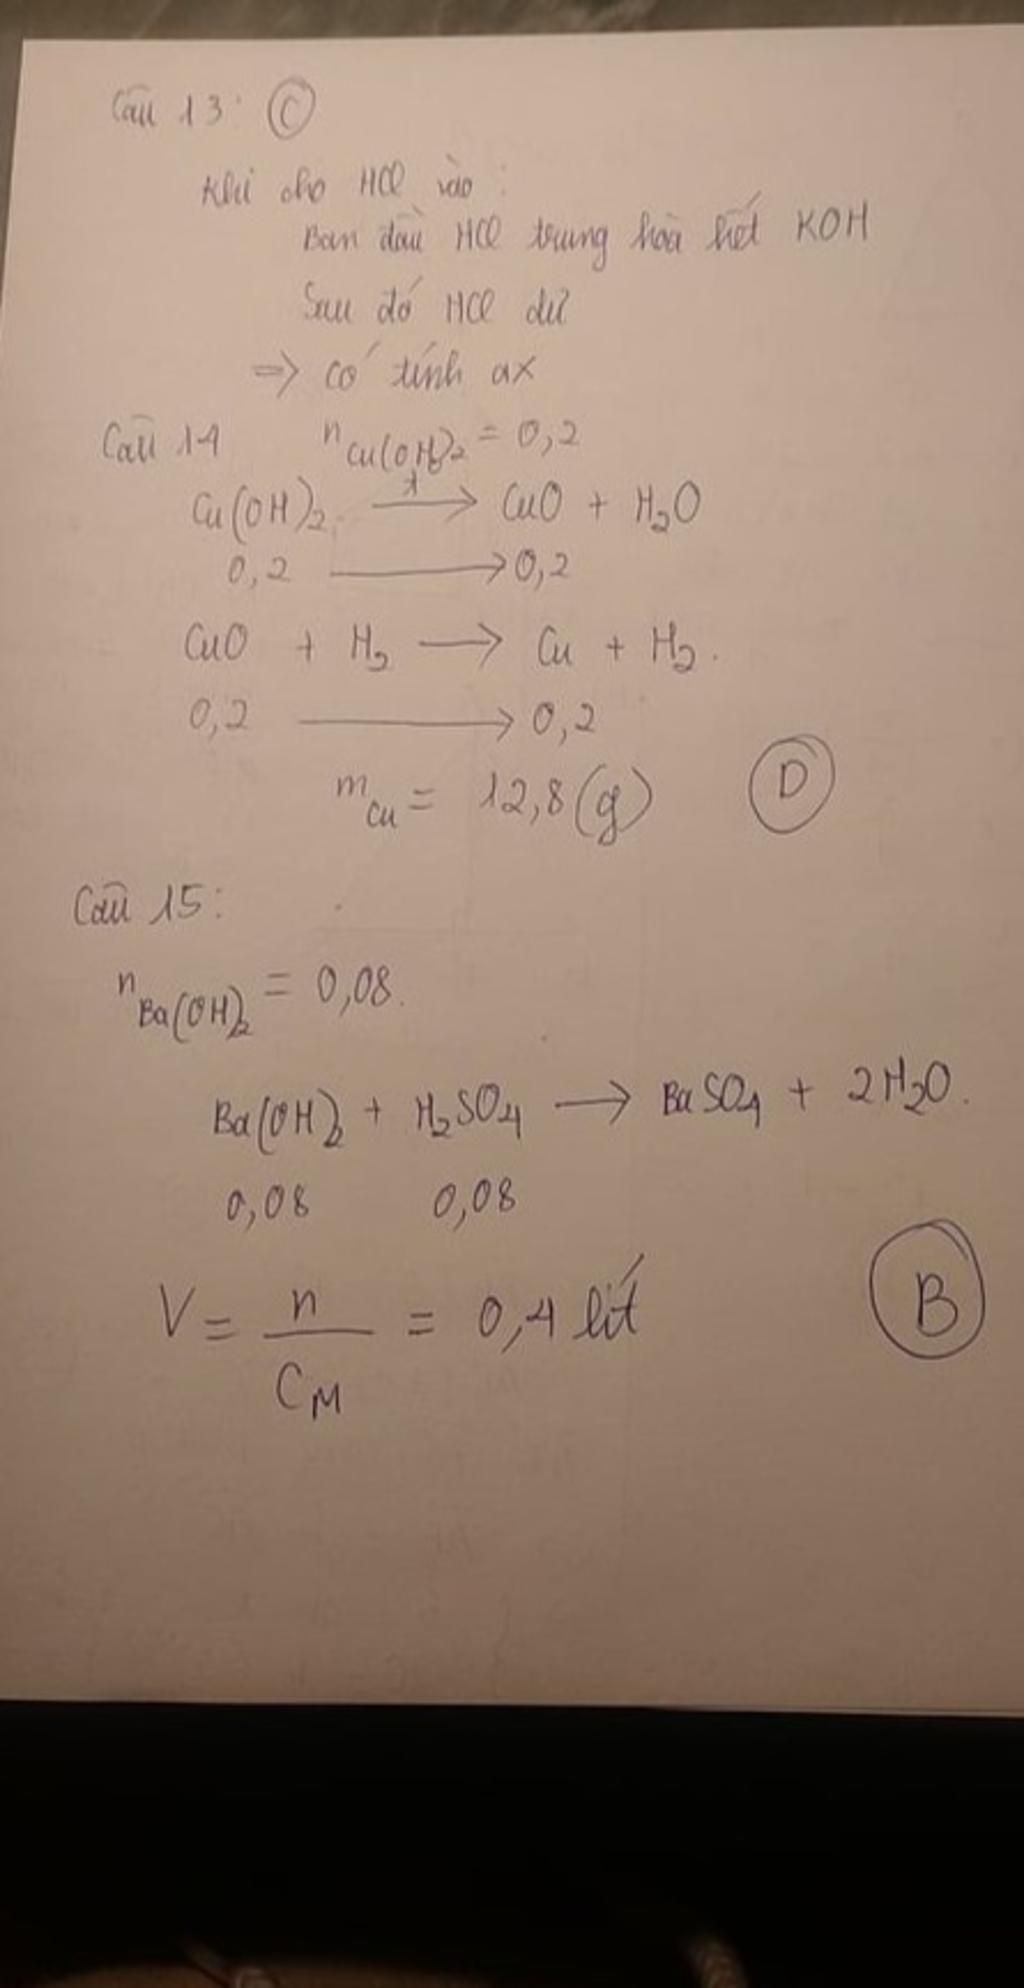 Câu 13: C
Khi cho HCl vào :
Ban đầu HCl trung hòa hết KOH
Sau đó HCl dư
=> có tính ax
Câu 14 nCu(OH)2 = 0,2
Cu(OH)2 —t→ CuO + H2O
0,2 → 0,2
CuO + H2 → Cu + H2.
0,2 → 0,2
mCu = 12,8(g) D
Câu 15:
nBa(OH)2 = 0,08.
Ba(OH)2 + H2SO4 → BaSO4 + 2H2O.
0,08 0,08
V = n/CM = 0,4 lít B